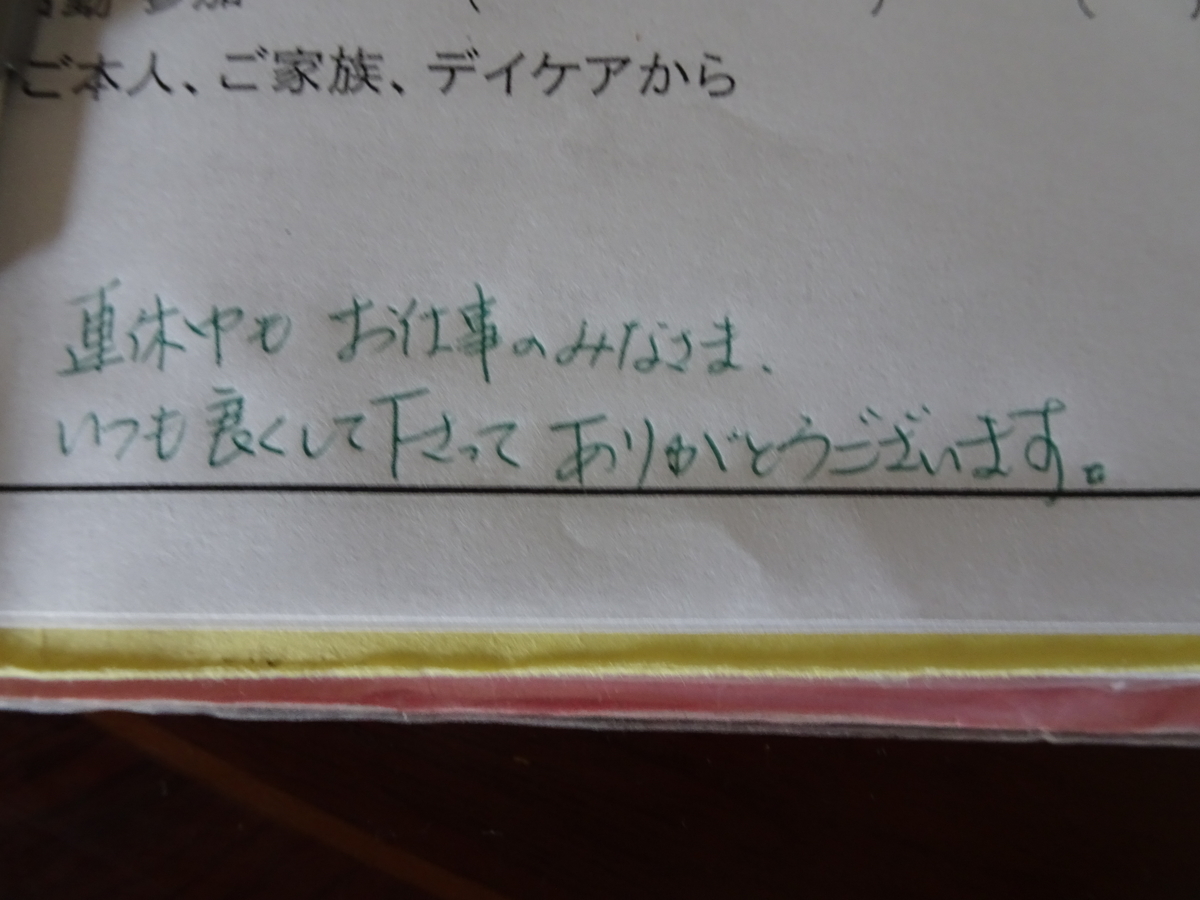 参加 ( ) (
ご本人、ご家族、デイケアから
連休中も お仕事のみなさま、
いつも良くして下さって ありがとうございます。